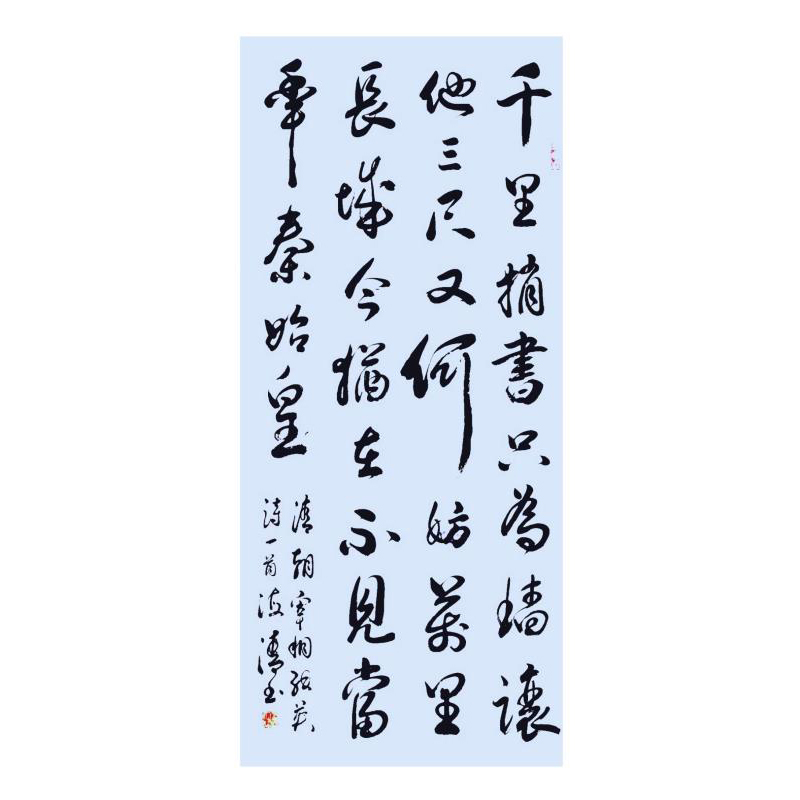 千里捎書只為墻讓
他三尺又何妨萬里
長城今猶在不見當
年秦始皇
清朝宰相張英
詩一首海濤書